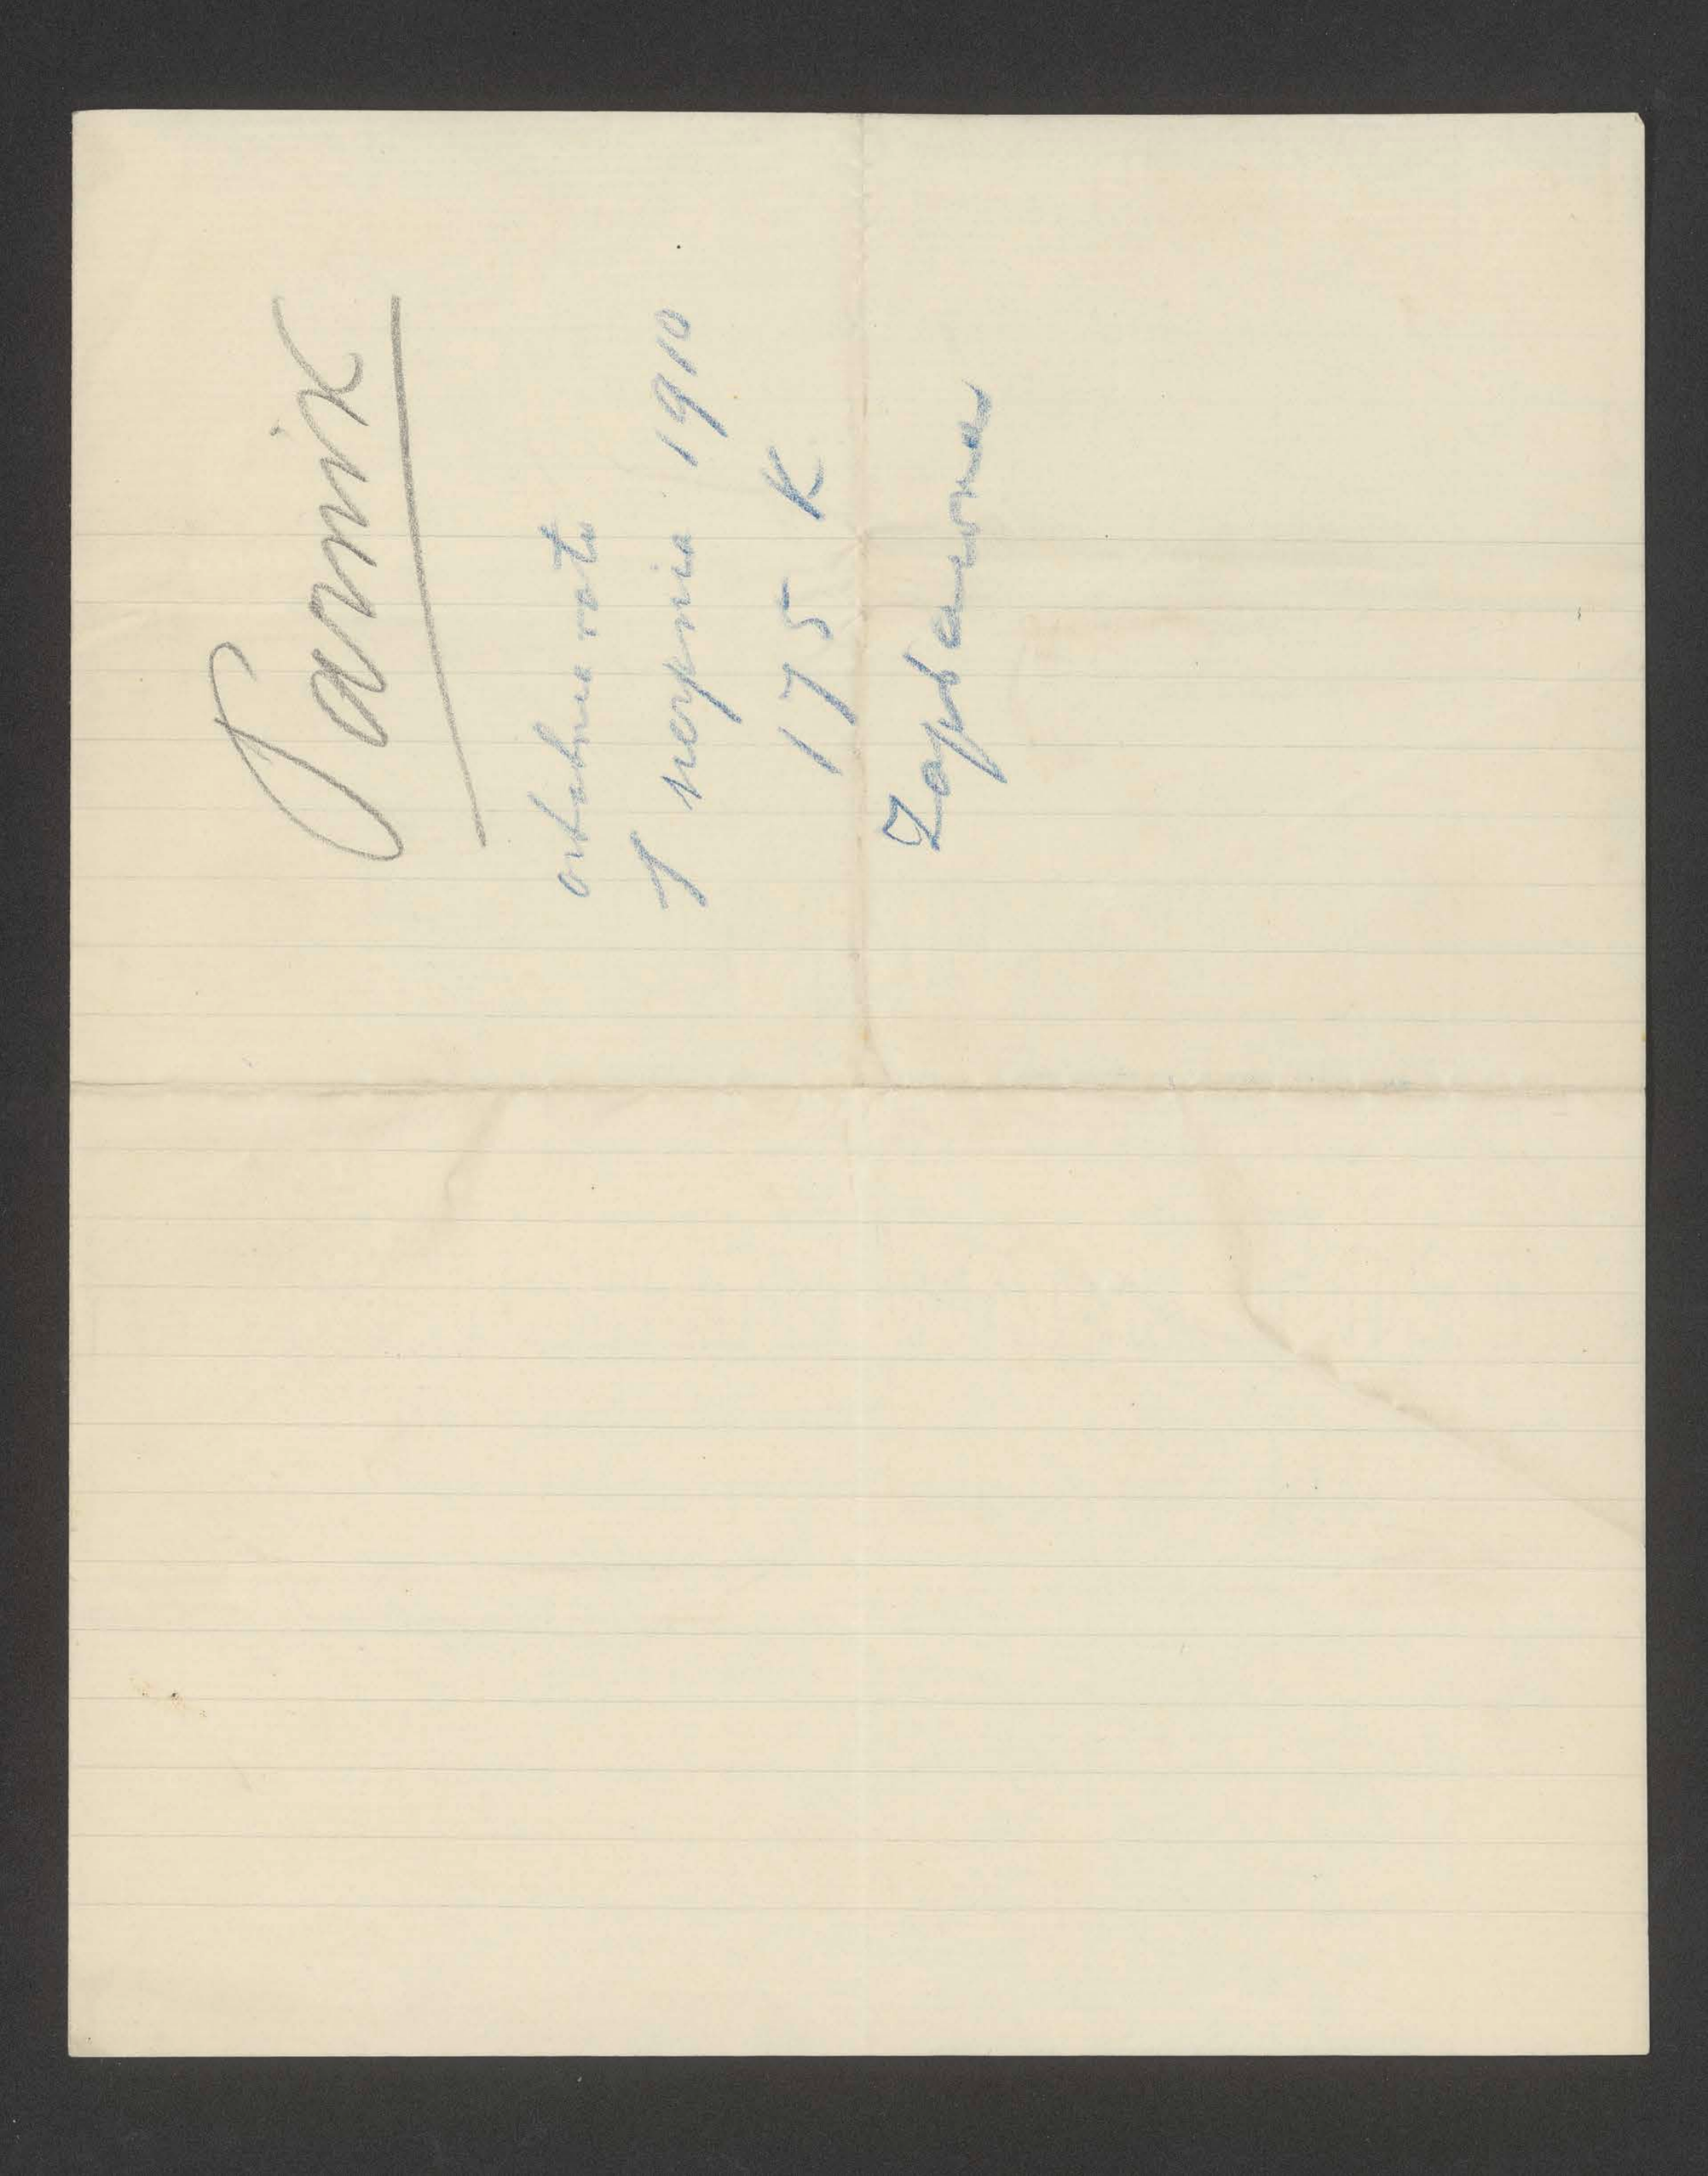 ostatnia rata
7 sierpnia 1910
175 K
Zapłacona